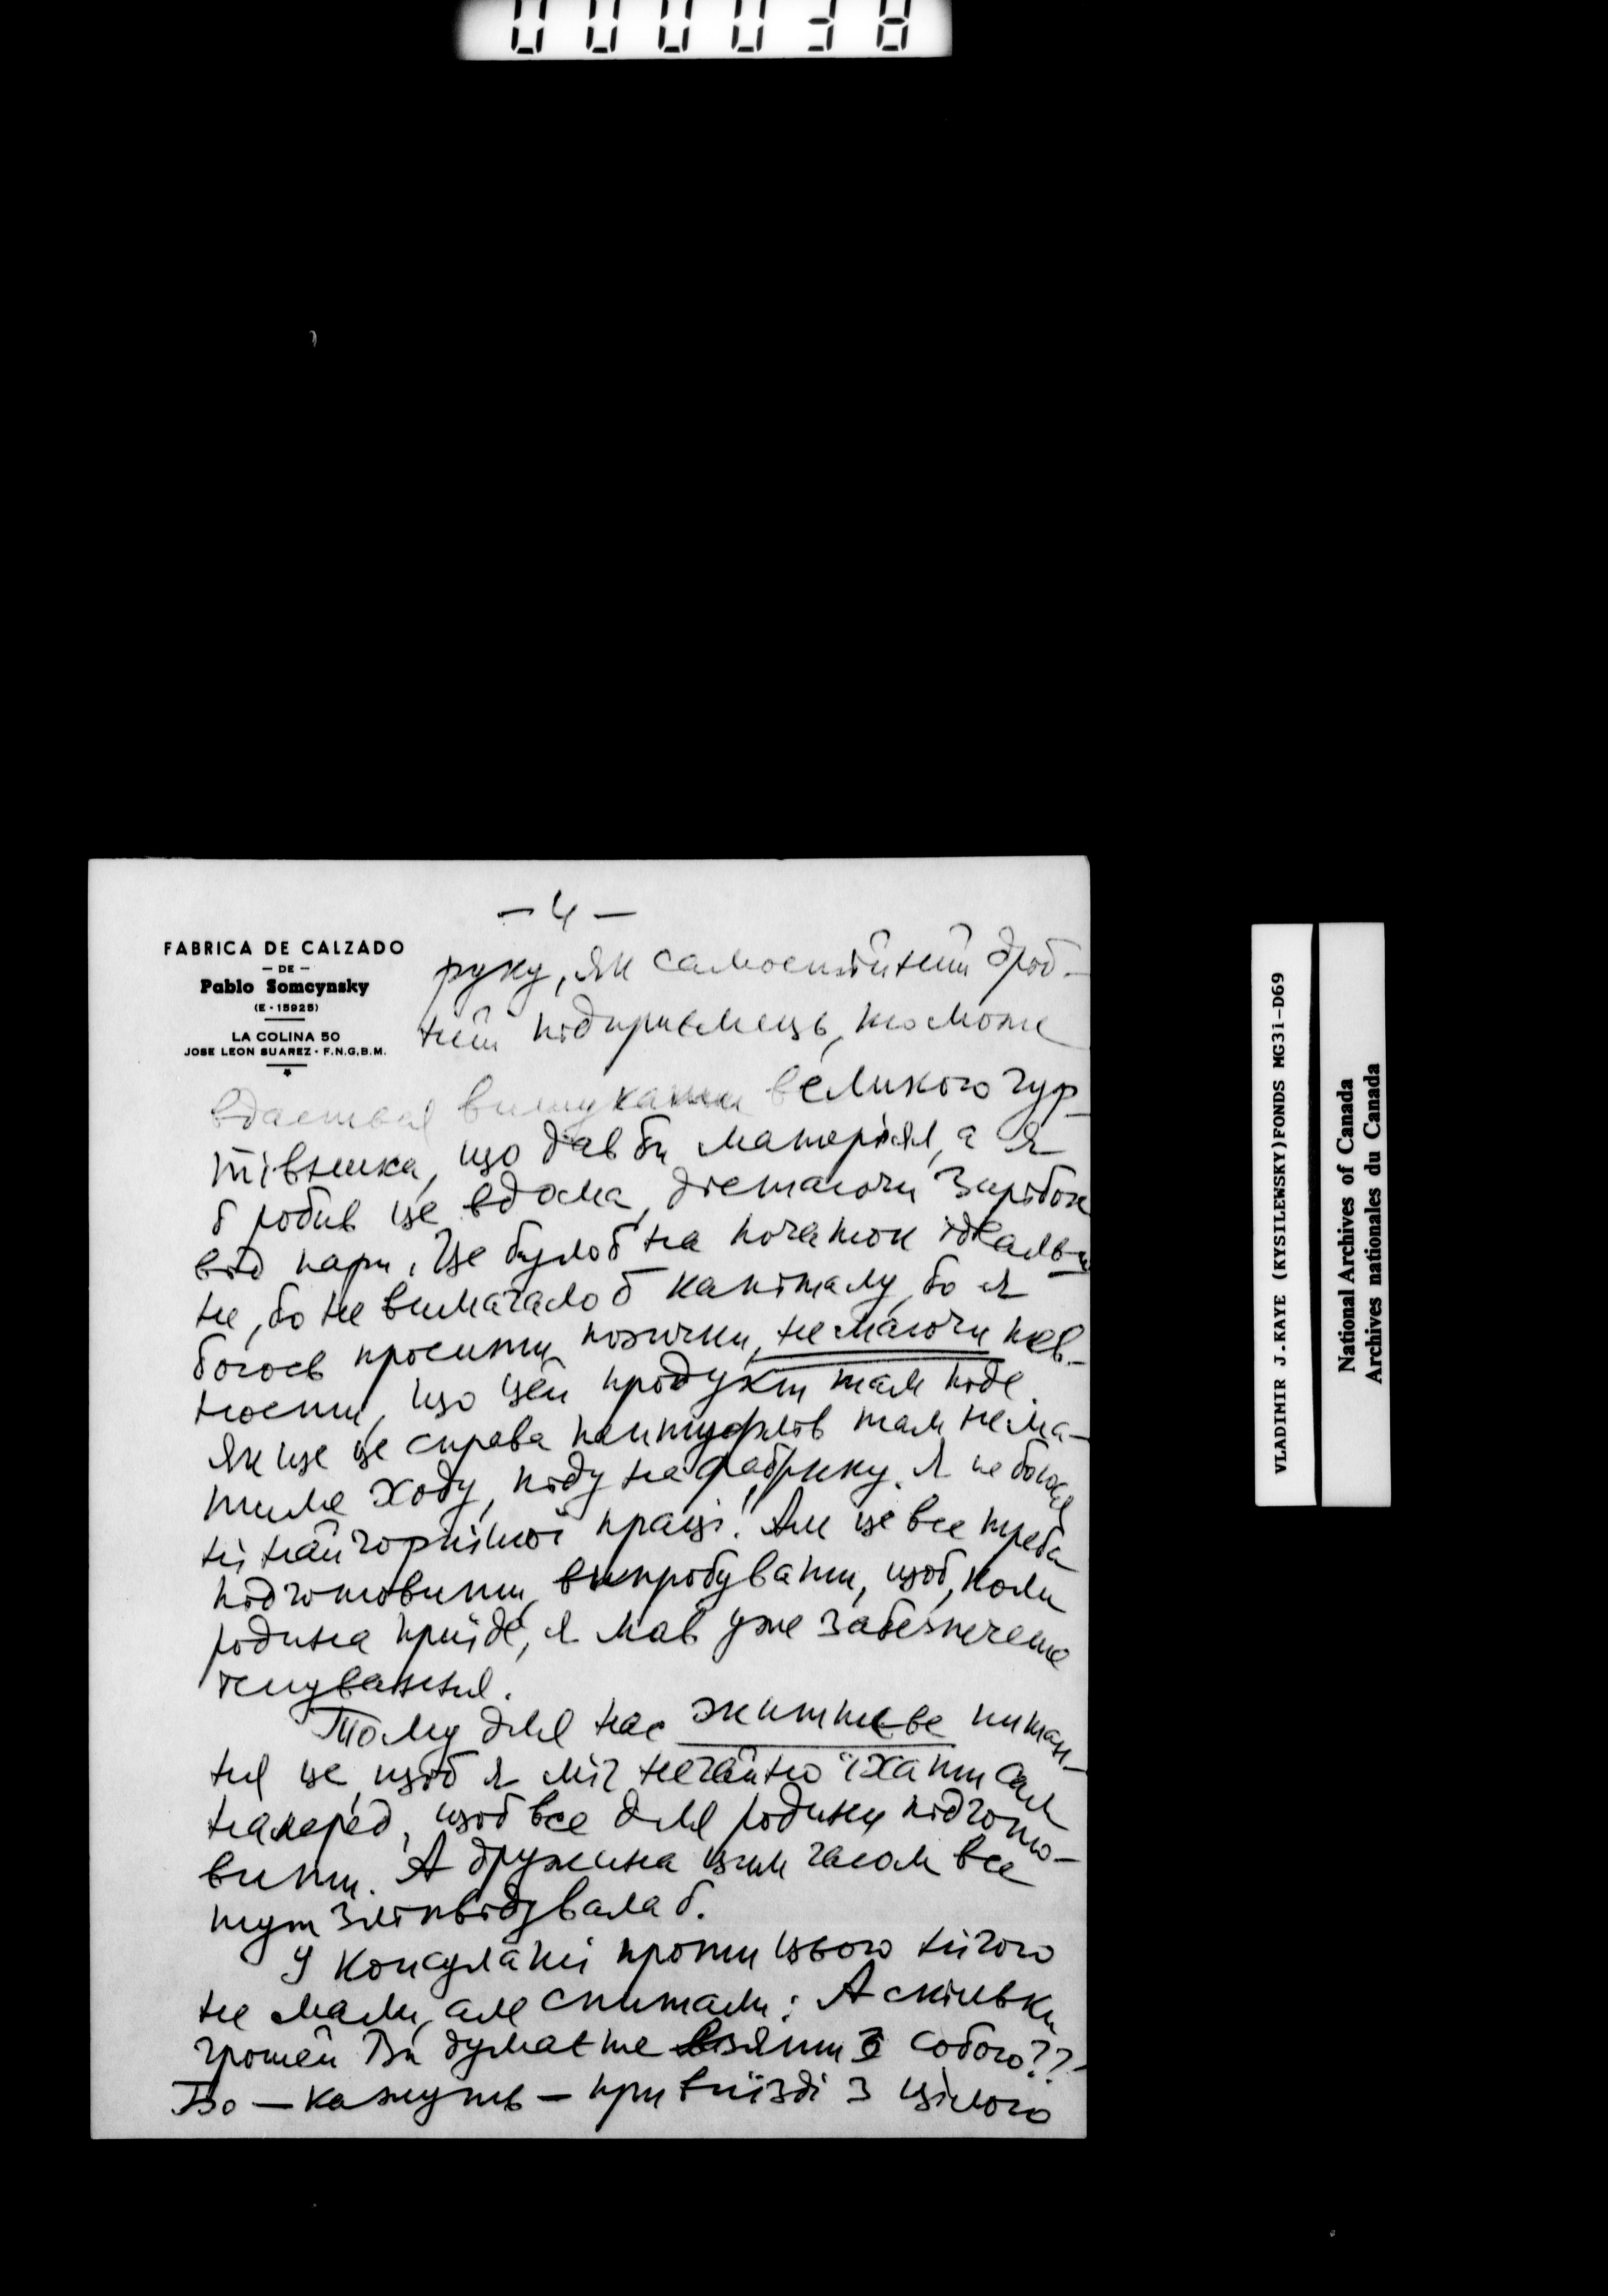 000038
- 4 -
FABRICA DE CALZADO
- DE -
Pablo Somcynsky
(E - 15925)
LA COLINA 50
JOSE LEON SUAREZ - F.N.G.B.M.
руку, як самостійний дріб-
ний підприємець, то може
вдасться вишукати великого гур-
тівника, що дав би матеріял, а я
б робив це вдома, дістаючи заробок
від пари. Це було б на початок ідеаль-
не, бо не вимагало б капіталу, бо я
боюсь просити позички, не маючи пев-
ности, що цей продукт там піде.
Як це справа пантофлів там не ма-
тиме ходу, піду на фабрику. Я не боюся
ні найгіршої праці! Але це все треба
підготовити, випробувати, щоб, коли
родина приїде, я мав уже забезпечене
існування.
Тому для нас життєве питан-
ня це, щоб я міг негайно їхати сам
наперед, щоб все для родини підгото-
вити. А дружина цим часом все
тут зліквідувала б.
У консуляті проти цього нічого
не мали, але спитали: А скільки
грошей Ви думаєте взяти з собою??-
Бо — кажуть — при виїзді з цілого
VLADIMIR J.KAYE (KYSILEWSKY)FONDS MG31-D69
National Archives of Canada
Archives nationales du Canada